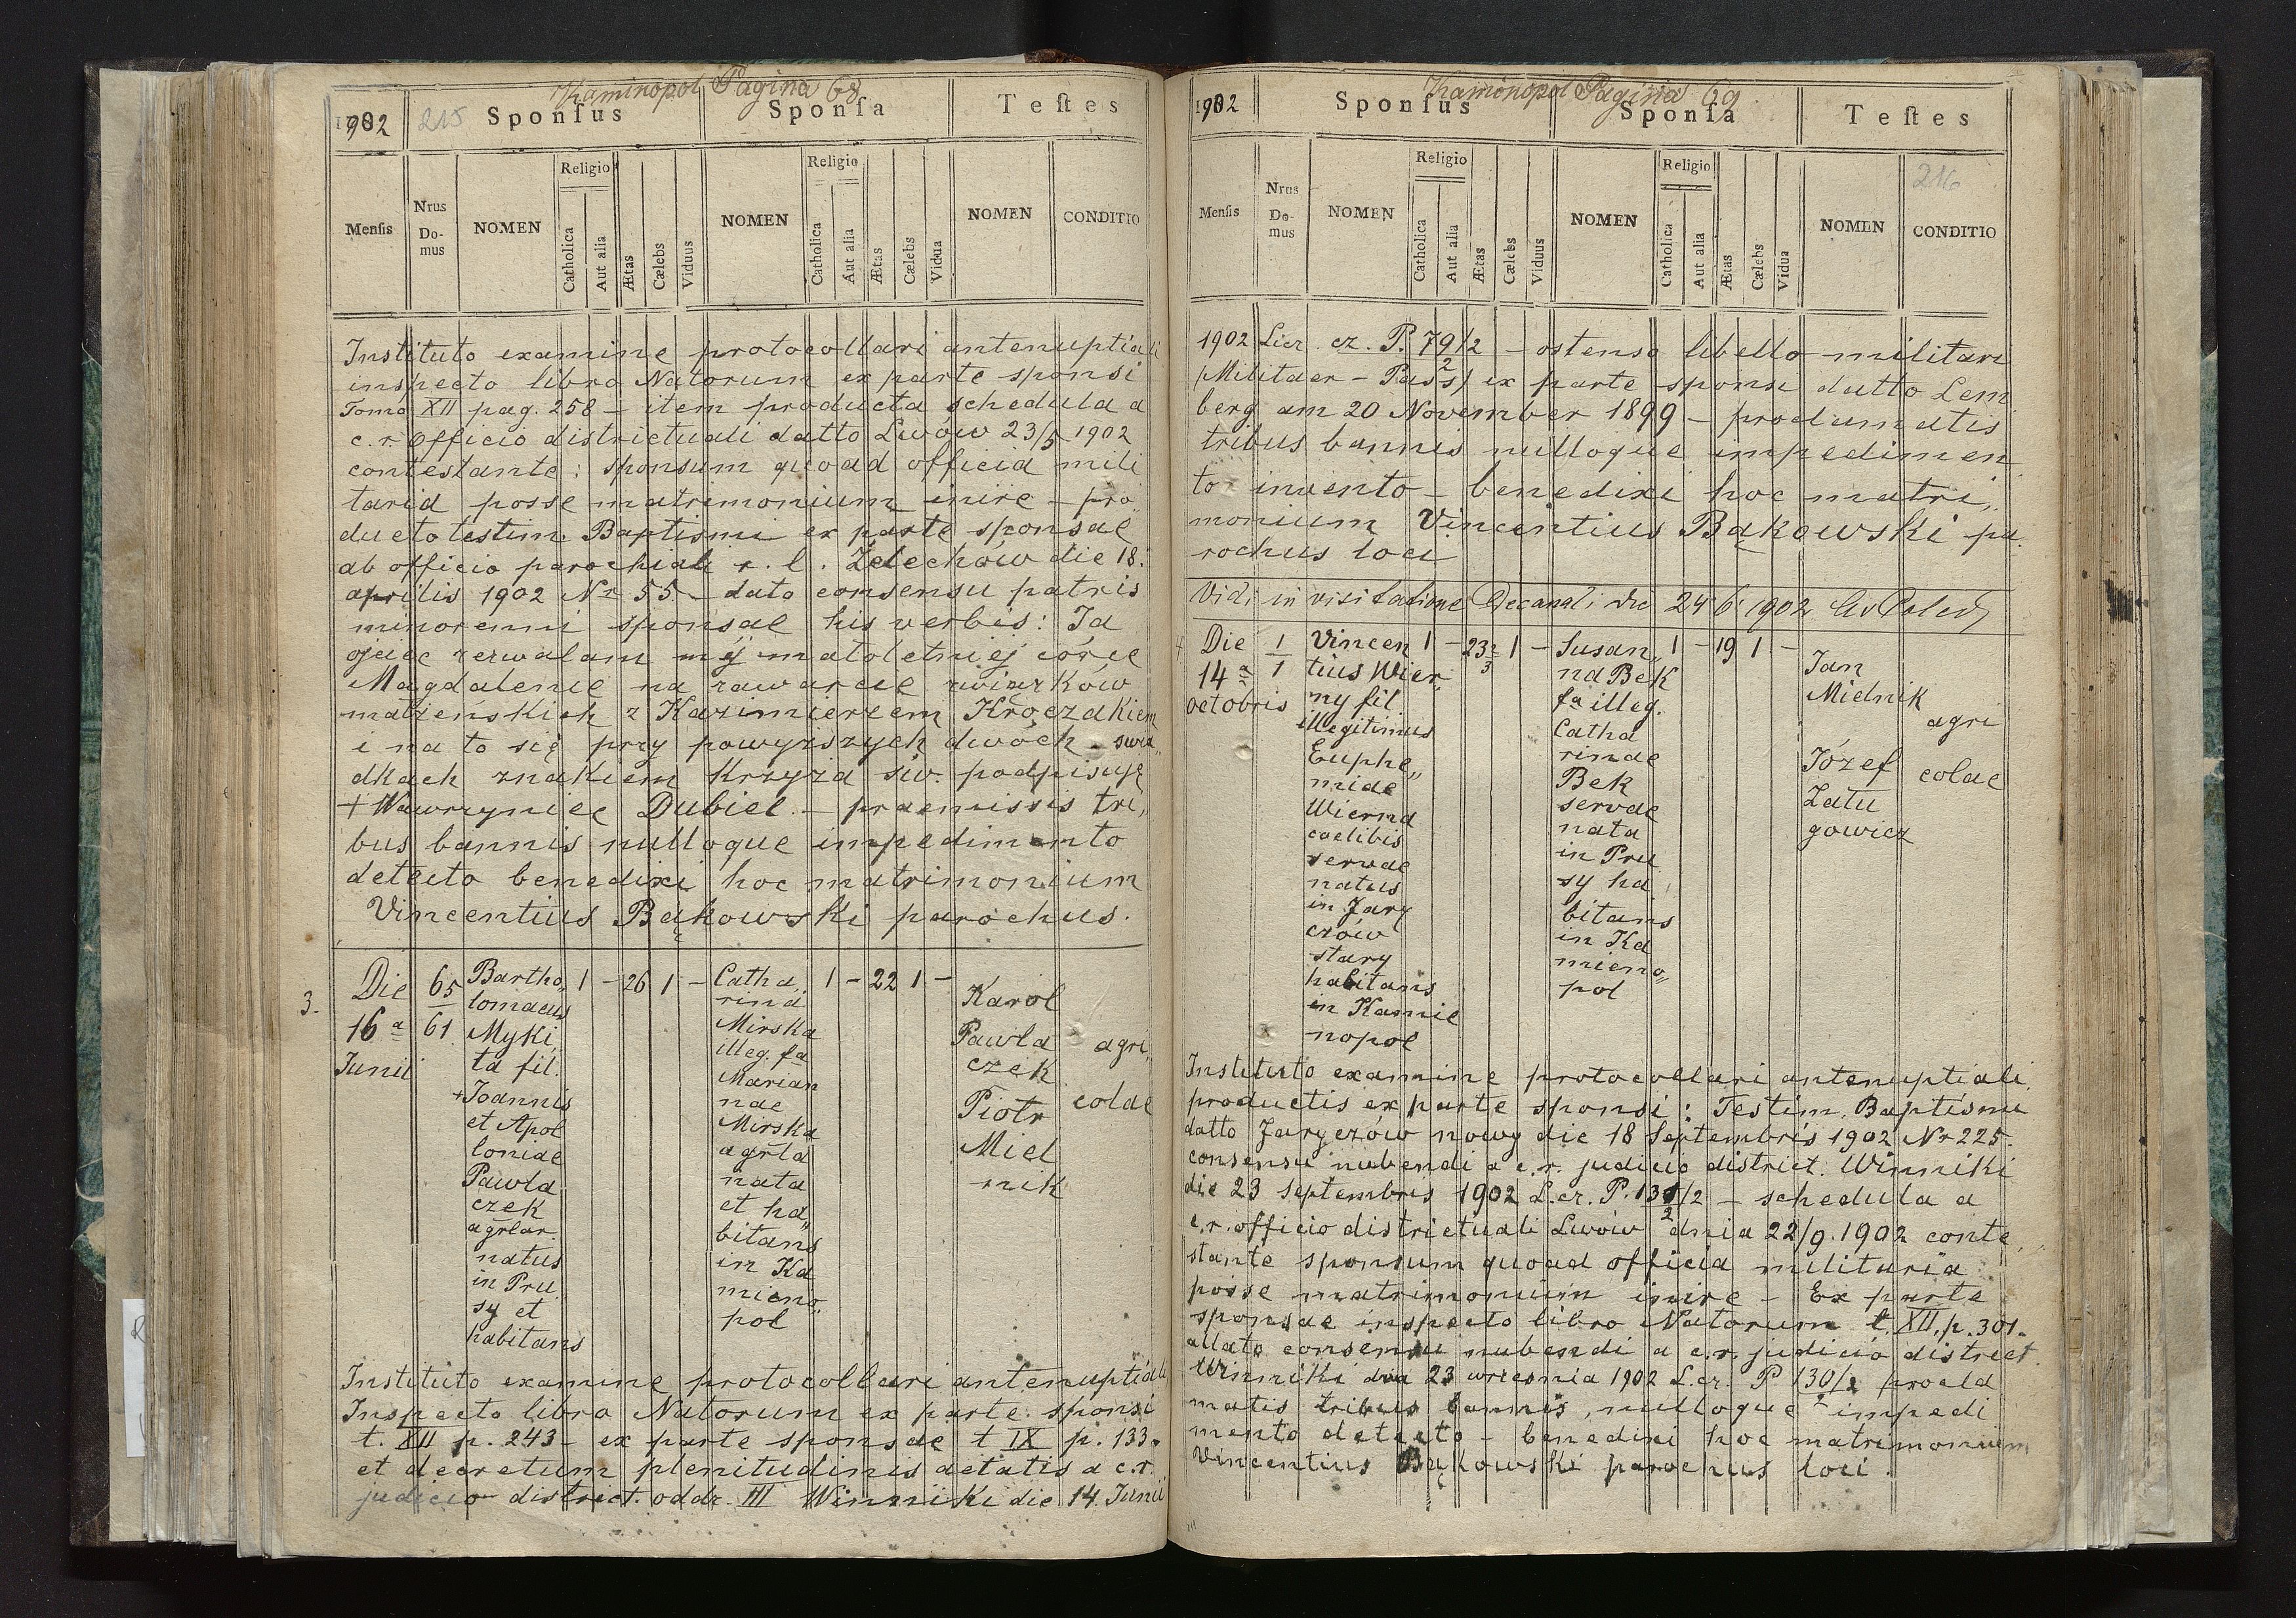 Kaminopol Pagina 68.
1902 215 Sponſus Sponſa Teſtes
Menſis Nrus Do-mus NOMEN Religio Catholica Aut alia Ætas Cælebs Viduus NOMEN Religio Catholica Aut alia Ætas Cælebs Vidua NOMEN CONDITIO
Instituto examine protocollari antenuptiali
inspecto libro Natorum ex parte sponsi
Tomo XII pag. 258 – item producta schedula a
c. r. Officio districtuali datto Lwów 23/5 1902
contestante: sponsum quoad officia mili
taria posse matrimonium inire – pro„
ducto testim. Baptismi ex parte sponsae
ab officio parochiali r. l. Żelechów die 18.
aprilis 1902 Nr 55 – dato consensu patris
minorenni sponsae his verbis: Ja
ojciec zezwalam mej małoletniej córce
Magdalenie na zawarcie związków
małżeńskich z Kazimierzem Kroczakiem
i na to się przy powyższych dwóch świa„
dkach znakiem krzyża św. podpisuję
+ Wawrzyniec Dubiel. – praemissis tri„
bus bannis nulloque impedimento
detecto benedixi hoc matrimonium
Vincentius Bąkowski parochus.
3. Die 65 Bartho„ 1 – 26 1 – Catha„ 1 – 22 1 –
lomaeus rina Karol
16a 61 Myki Mirska Pawła agri„
Junii ta fil. illeg. fa czek
+Joannis Marian Piotr colae
et Apol nae Miel
loniae Mirska nik
Pawła agrla
czek nata
agrlar. et ha„
natus bitans
in Pru in Ka
sy et mieno„
habitans pol
Instituto examine protocollari antenuptiali
Inspecto libro Natorum ex parte sponsi
t. XII p. 243 – ex parte sponsae t IX p. 133.
et decretum plenitudinis aetatis a c.r.
judicio district. oddz. III Winniki die 14. Junii
Kamionopol Pagina 69
1902 Sponſus Sponſa Teſtes
216
Menſis Nrus Do-mus NOMEN Religio Catholica Aut alia Ætas Cælebs Viduus NOMEN Religio Catholica Aut alia Ætas Cælebs Vidua NOMEN CONDITIO
1902 Licz. cz. P. 79/2 2 – ostenso libello militari
(Militaer – Pass) ex parte sponsi datto Lem
berg am 20 November 1899 – proclamatis
tribus bannis nulloque impedimen
to invento – benedixi hoc matri„
monium Vincentius Bąkowski pa„
rochus loci
Vidi in visitatione Decanali die 24 6 1902
4 Die 1 Vincen 1 – 23 2/3 1 – Susan„ 1 – 19 1 –
14a 1 tius Wier„ na Bek Jan
octobris ny fil. fa illeg. Mielnik
illegitimus Catha agri
Euphe„ rinae Józef colae
miae Bek Zatu
Wierna servae gowicz
caelibis nata
servae in Pru
natus sy ha„
in Jary bitans
czów in Ka
stary mieno„
habitans pol
in Kamie
nopol
Instituto examine protocollari antenuptiali
productis ex parte sponsi: Testim. Baptismi
datto Jaryczów nowy die 18 Septembris 1902 Nr 225.
consensu nubendi a c.r. judicio district. Winniki
die 23 Septembris 1902 L.cz. P. 131/2 2 – schedula a
c.r. officio districtuali Lwów dnia 22/9. 1902 conte„
stante sponsum quoad officia militaria
posse matrimonium inire – Ex parte
sponsae inspecto libro Natorum t. XII. p. 301.
allato consensu nubendi a c.r. judicio district.
Winniki dnia 23 września 1902 L.cz. P 130/2 procla
matis tribus bannis, nulloque impedi
mento detecto – benedixi hoc matrimonium
Vincentius Bąkowski parochus loci.